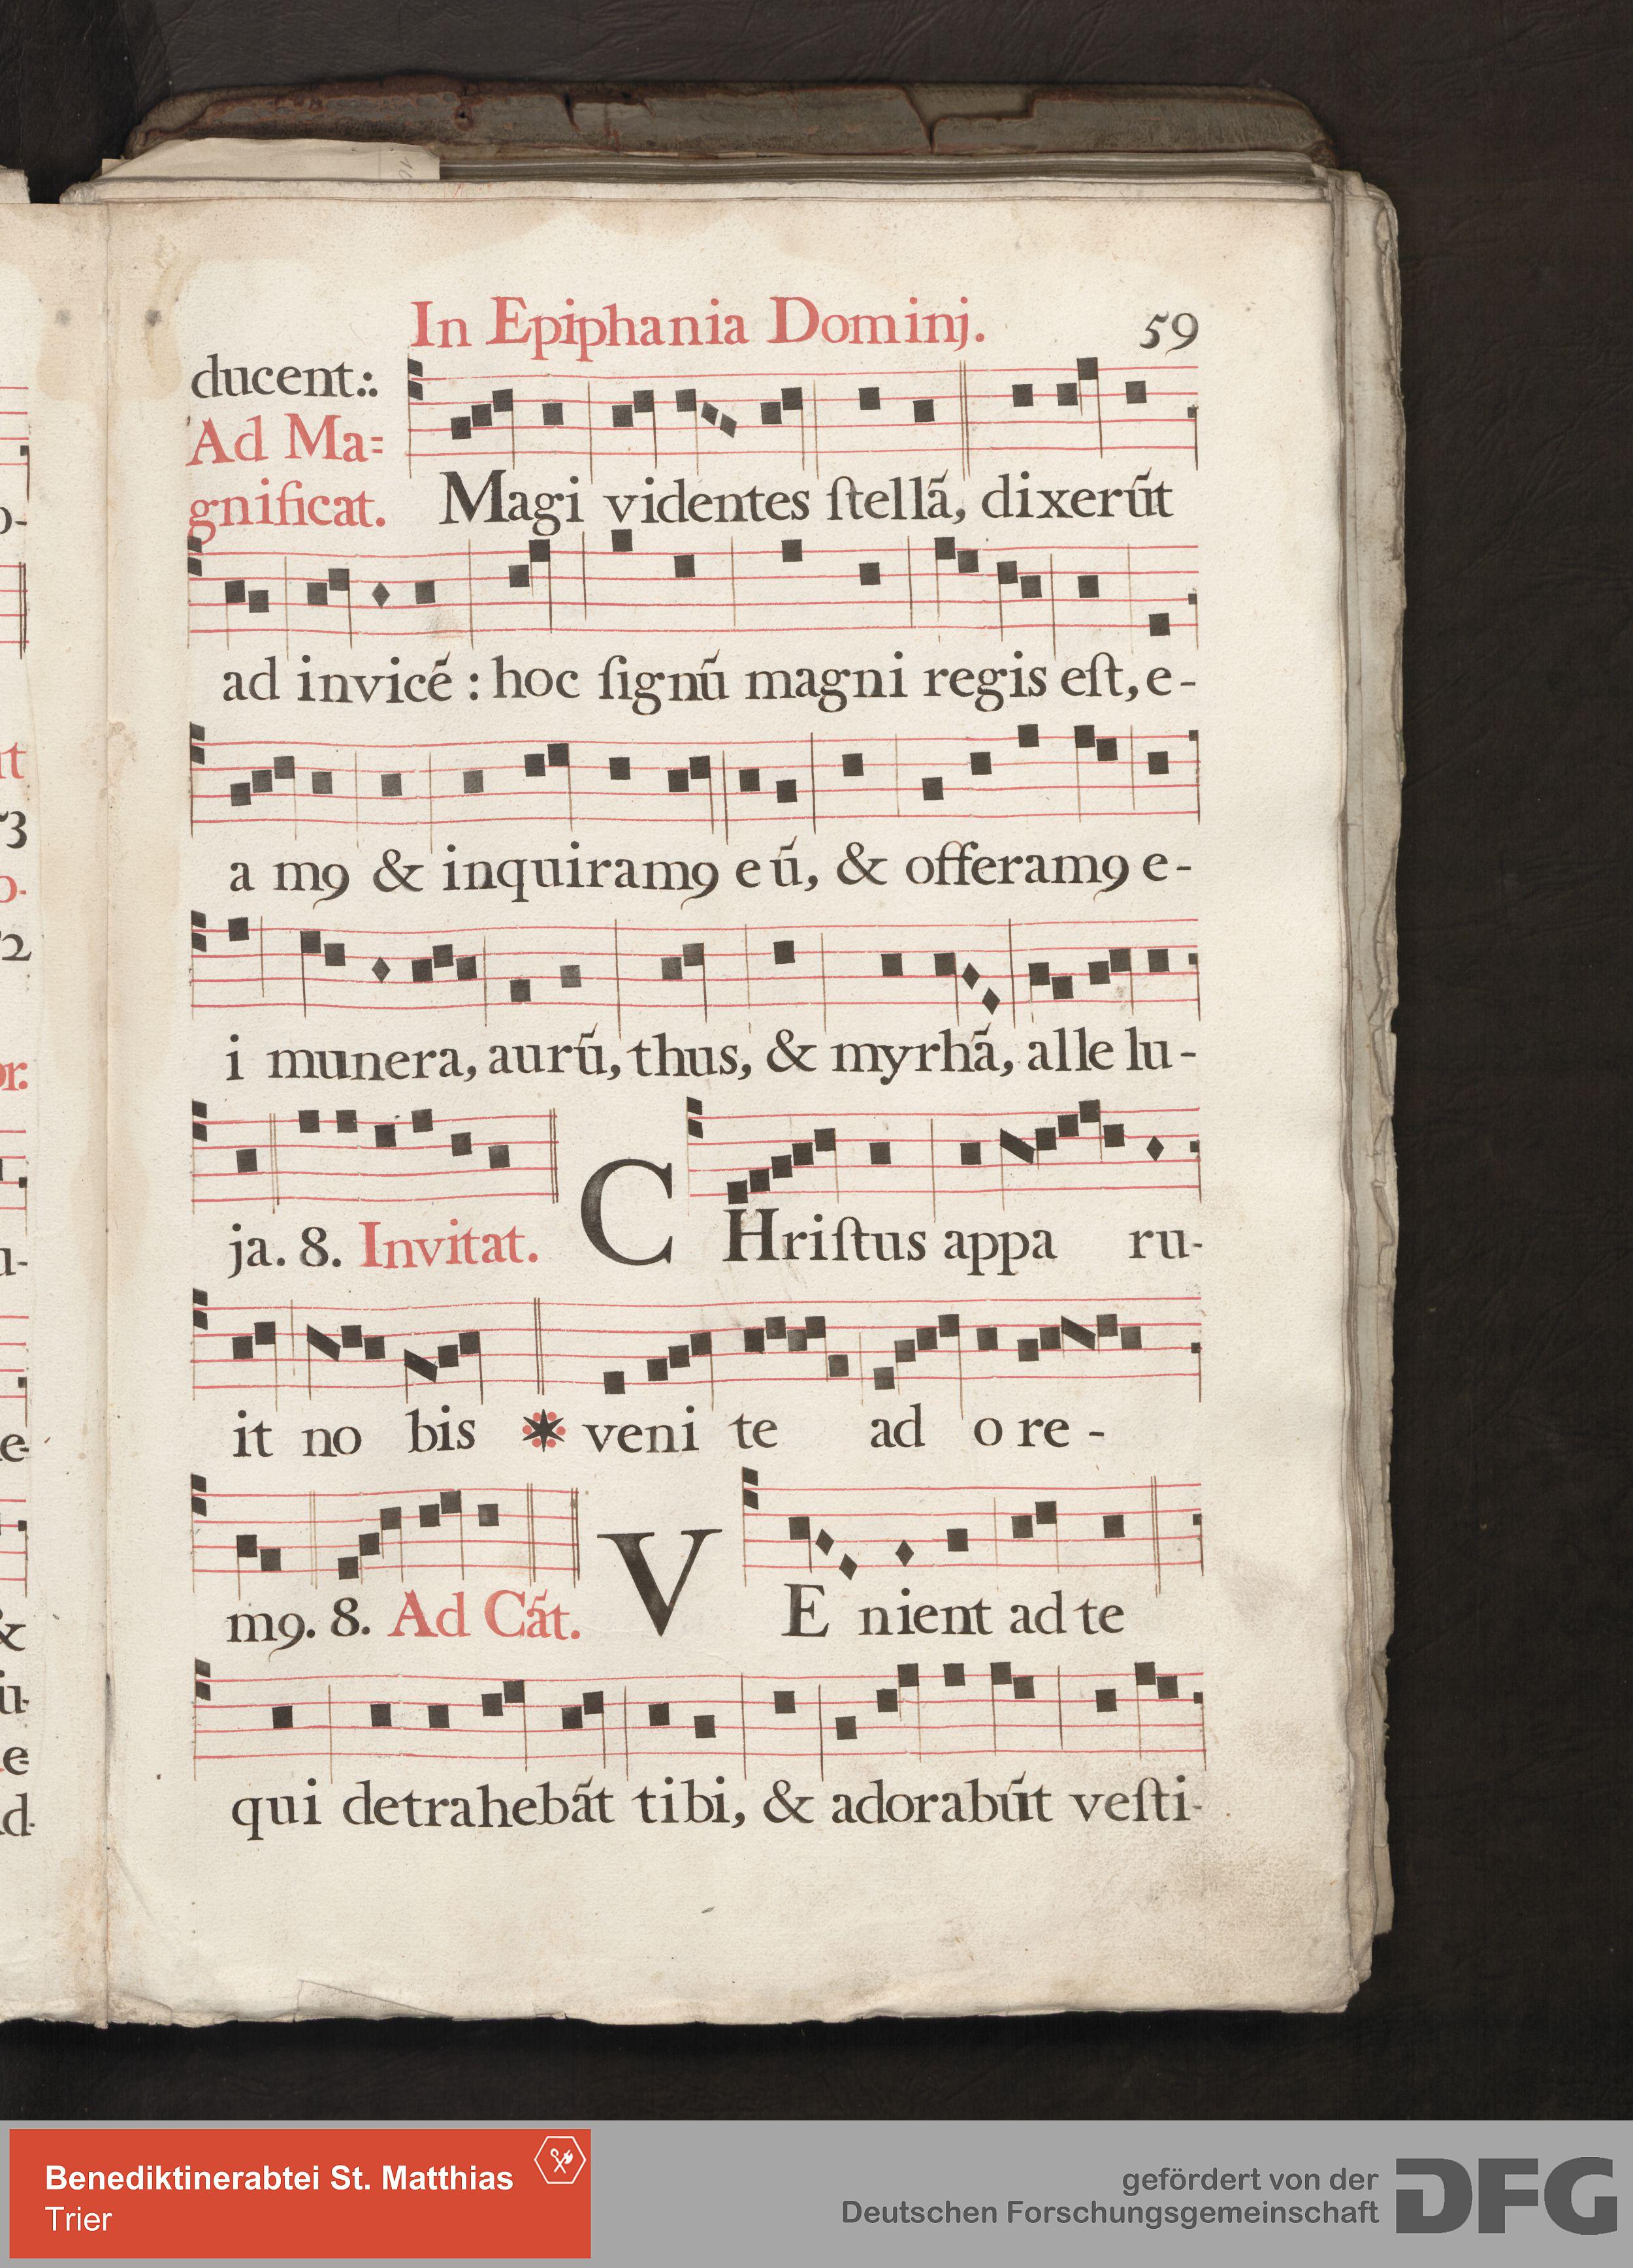 In Epiphania Dominj. 59
ducent.:.
Ad Ma=
gnificat. Magi videntes ſtellã, dixerũt
ad invicẽ : hoc ſignũ magni regis eſt, e-
a m9 & inquiram9 eũ, & offeram9 e-
i munera, aurũ, thus, & myrhã, alle lu-
ja. 8. Invitat. C Hriſtus appa ru-
it no bis * veni te ad o re -
m9. 8. Ad Cãt. V E nient ad te
qui detrahebãt tibi, & adorabũt veſti-
Benediktinerabtei St. Matthias
Trier
gefördert von der
Deutschen Forschungsgemeinschaft
DFG